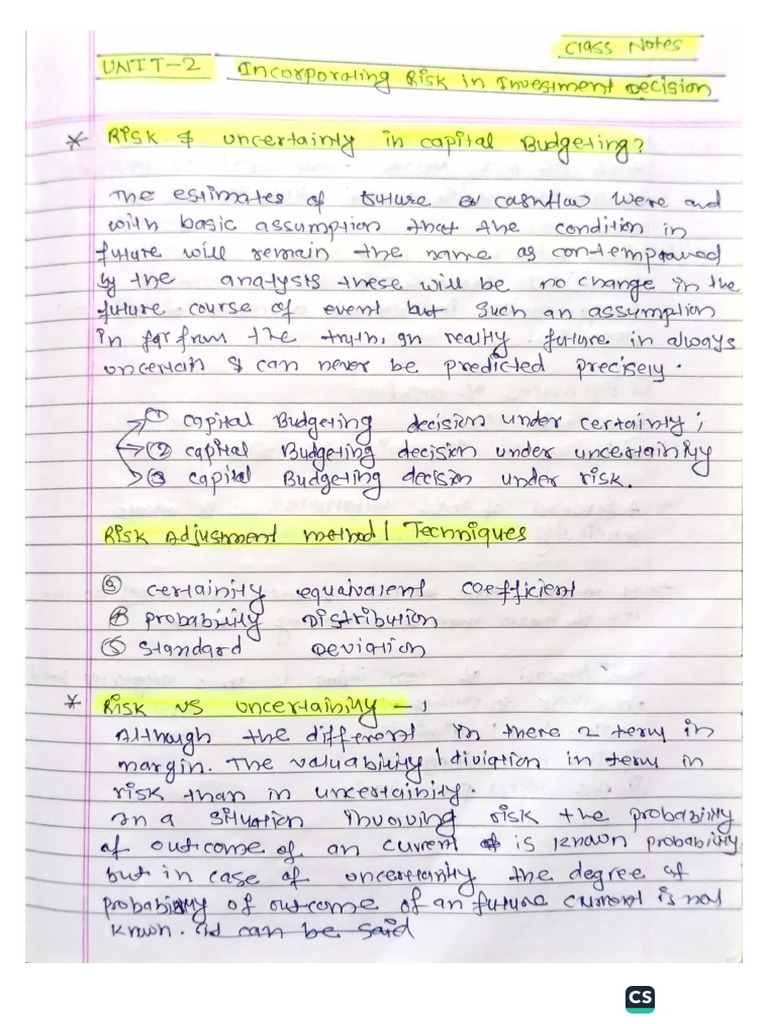 Class Notes
UNIT-2 Incorporating Risk in Investment Decision
* Risk & uncertainty in capital Budgeting?
The estimates of future cashflow were and
with basic assumption that the condition in
future will remain the name as contempraued
by the analysts these will be no change in the
future course of event but such an assumption
in far from the truth, in reality future in always
uncertain & can never be predicted precisely.
① capital Budgeting decision under certainty;
② capital Budgeting decision under uncertainity
③ capital Budgeting decision under risk.
Risk Adjustment method | Techniques
③ certainity equivalent coefficient
④ probability Distribution
⑤ Standard Deviation
* Risk vs uncertainity -;
Although the different in there 2 term in
margin. The valuability | diviation in term in
risk than in uncertainity.
In a situation involving risk the probability
of outcome of an current is known probability
but in case of uncertainty the degree of
probability of outcome of an future current is not
known. it can be said
CS